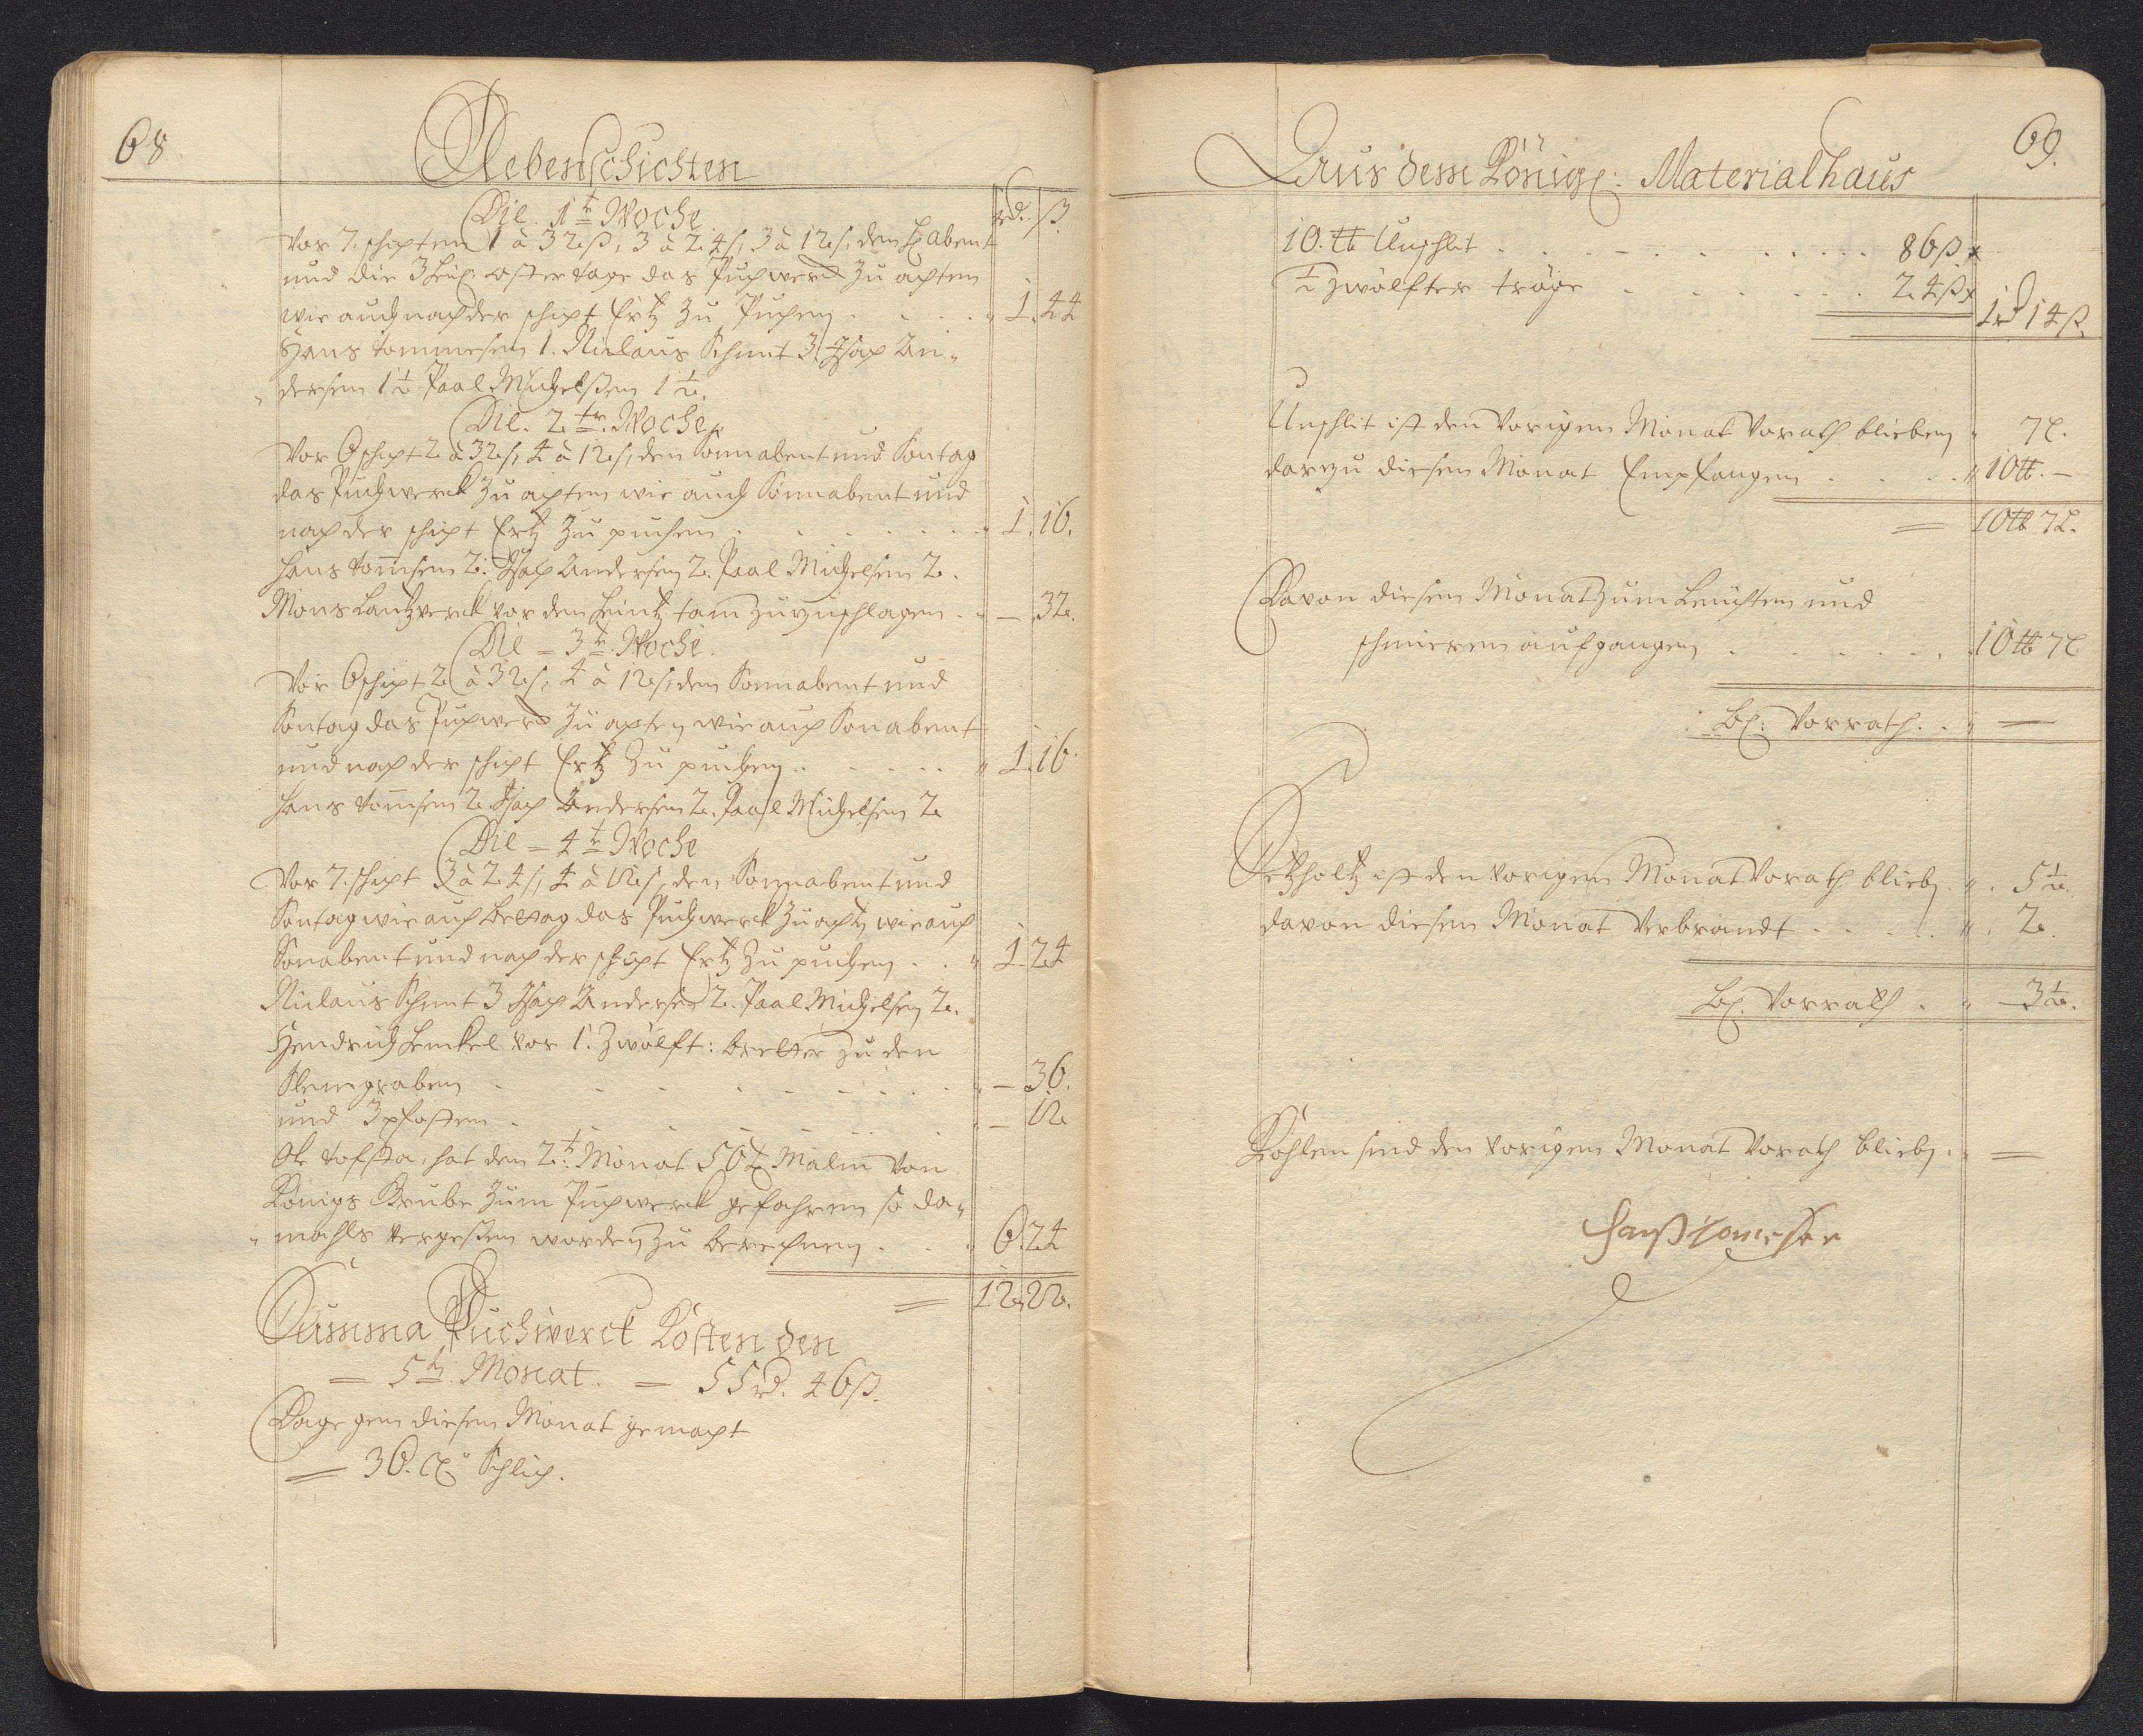 68
Nebenschichten
rd. ß
Die 1t Woche
Vor 7. schichten 1 à 32 ß, 3 à 24 ß, 3 à 12 ß, den H. abent
und die 3 Heil. ostertage das Puchwerck Zu achten
wie auch nach der schicht Ertz Zu Puchen . . . . 1. 44
Hans tommesen 1. Niclaus Schmit 3. An-
dersen 1½ Paal Michelßen 1½.
Die 2tr. Woche
Vor 6 schicht 2 à 32 ß, 4 à 12 ß, den Sonnabent und Sontag
das Puchwerck Zu achten wie auch Sonnabent und
nach der schicht Ertz Zu puchen . . . . 1. 16.
Hans tom̅sen 2. Andersen 2. Paal Michelsen 2.
Mons vor den zuzuschlagen . . — 32.
Die = 3t. Woche.
Vor 6 schicht 2 à 32 ß, 4 à 12 ß, den Sonnabent und
Sontag das Puchwerck Zu achten wie auch Sonabent
und nach der schicht Ertz Zu puchen . . . . 1. 16
Hans tom̅sen 2. Andersen 2. Paal Michelsen 2
Die = 4t Woche
Vor 7. schicht 3 à 24 ß, 4 à 12 ß, den Sonnabent und
Sontag wie auch bettag das Puchwerck Zu achtn wie auch
Sonabent und nach der schicht Ertz Zu puchen . . 1. 24
Niclaus Schmit 3 Andersen 2. Paal Michelsen 2.
Hendrich Henckel vor 1. Zwölft: bretter zu den
graben . . . . — 36.
und 3 pfosten . . . . — 12
Ole tofsta, hat den 2t. Monat 50 Malm Von
Königs Grube Zum Puchwerck gefahren so da-
mahls vergeßen worden Zu berechnen . . . 6. 24
= 12. 22.
Summa Puchwerck Kosten den
= 5tn. Monat. = 55 rd. 46 ß.
Dagegen diesen Monat gemacht
= 36. Schlich.
69.
Aus dem Königl: Materialhaus
10. ℔ Unschlit . . . . 86 ß
½ Zwölfter tröge . . . . 24 ß
1 rd 14 ß.
Unschlit ist den Vorigen Monat Vorath blieben " 7
darzu diesen Monat Empfangen . . . . " 10 ℔. —
= 10 ℔ 7
Davon diesen Monat zum Leuchten und
schmieren aufgangen . . . . 10 ℔ 7
Bl: Vorrath . . " =
Setzholtz ist den vorigen Monat Vorath bliebn . " . 5½.
davon diesen Monat Verbrandt . . . . " . 2.
Bl. Vorrath . " 3½.
Kohlen sind den vorigen Monat Vorath bliebn . " =
Hanß tomessen